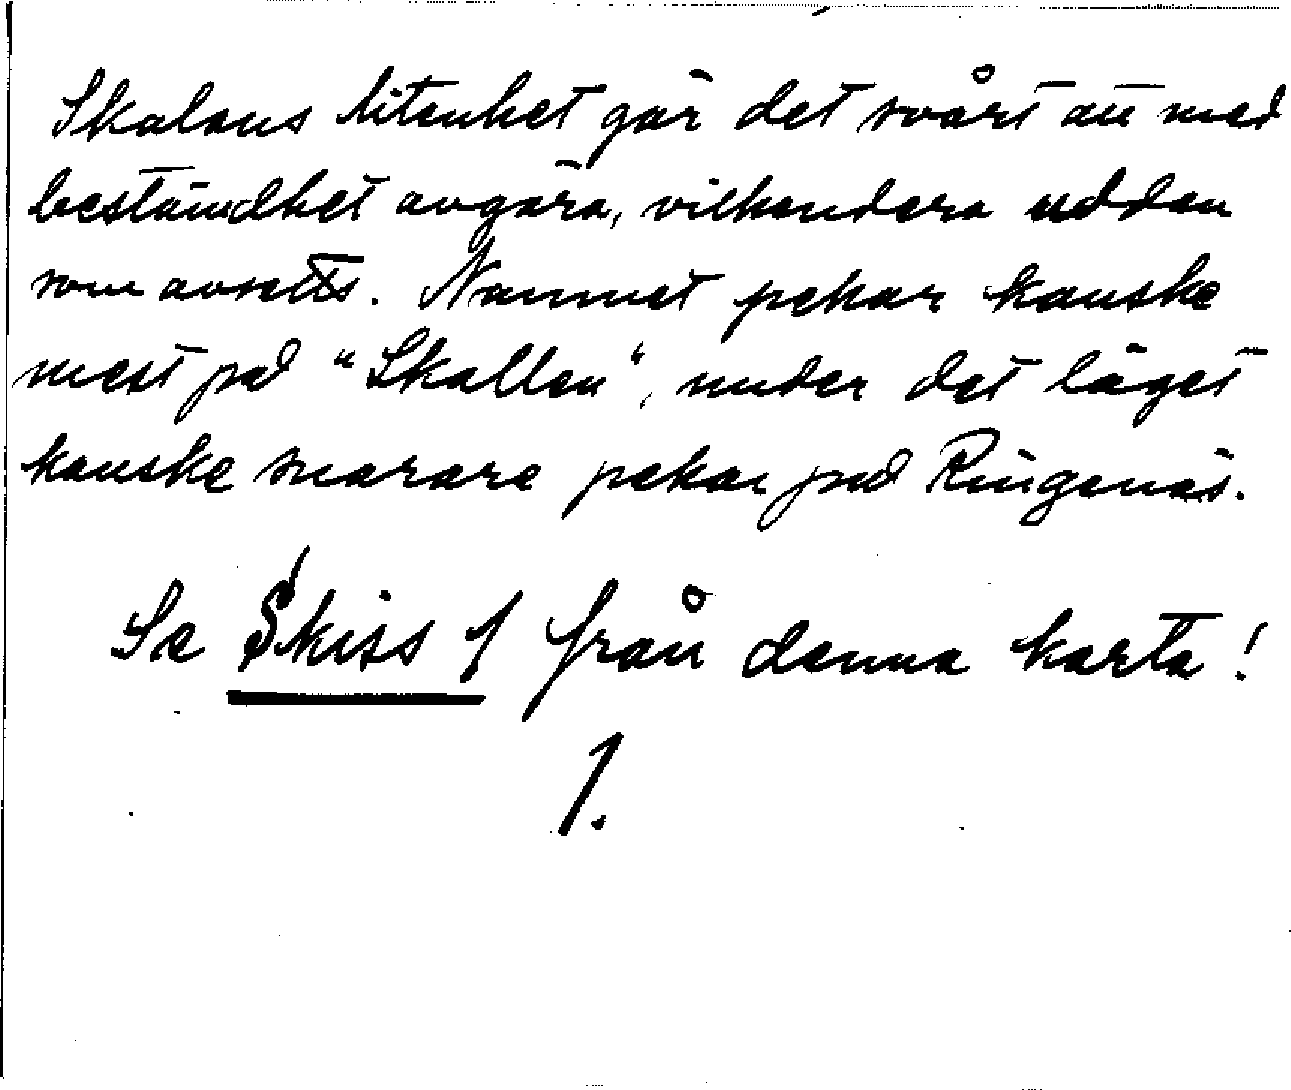 Skalans litenhet gör det svårt att med
bestämdhet avgöra, vilkendera udden
som avsetts. Namnet pekar kanske
mest på "Skallen", under det läget
kanske snarare pekar på Ringenäs.
Se Skiss 1 från denna karta!
1.